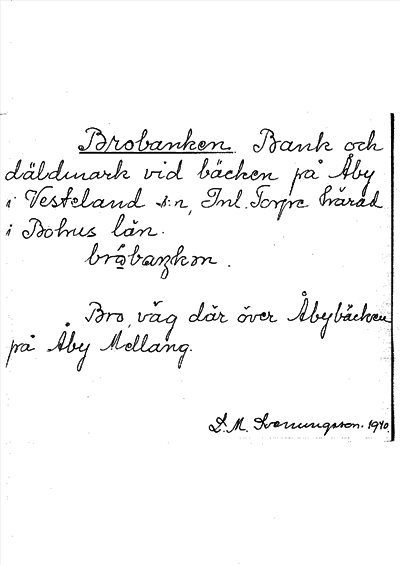 Brobanken. Bank och
däldmark vid bäcken på Åby
i Vesteland s:n, Inl. Torpe härad
i Bohus län.
Bro, väg där över Åbybäcken
på Åby Mellang.
S. M. Svenungsson. 1940.